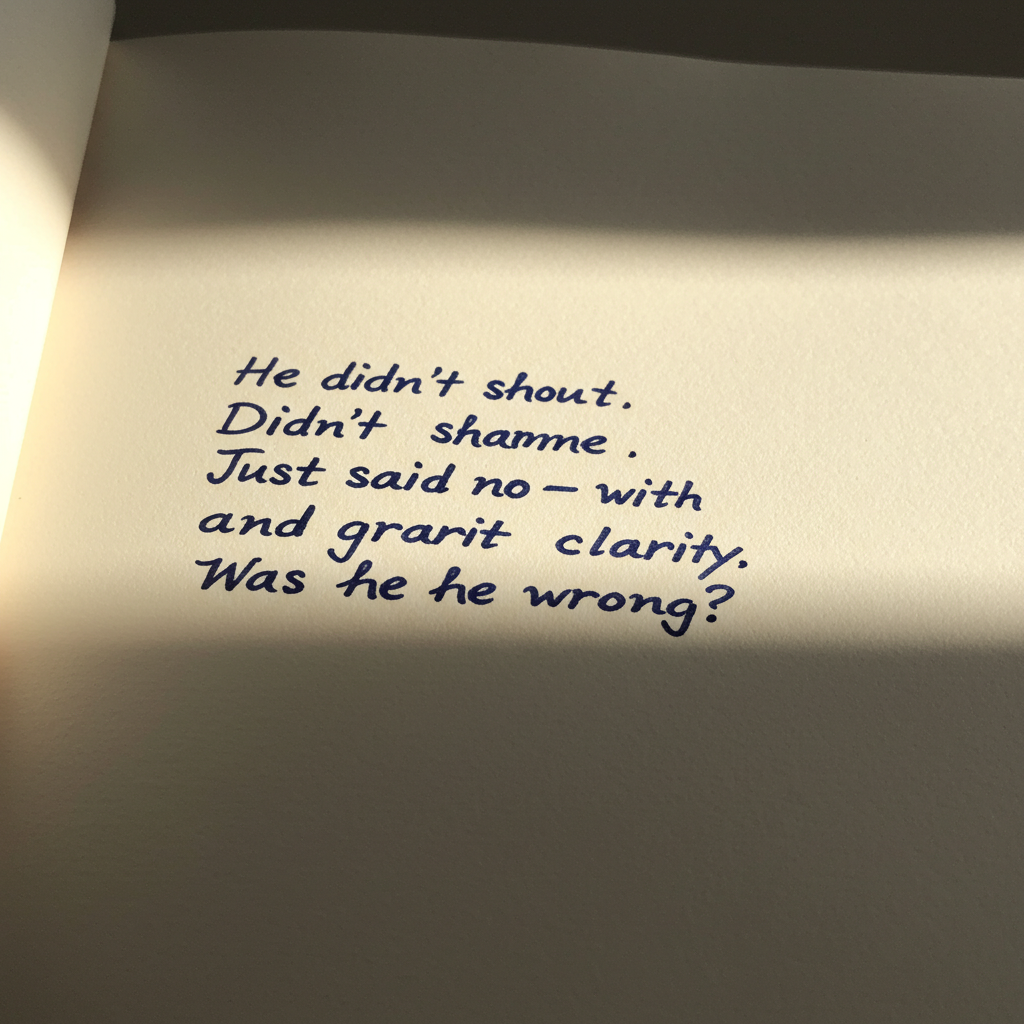 He didn't shout.
Didn't shamme.
Just said no – with
and grarit clarity.
Was he he wrong?